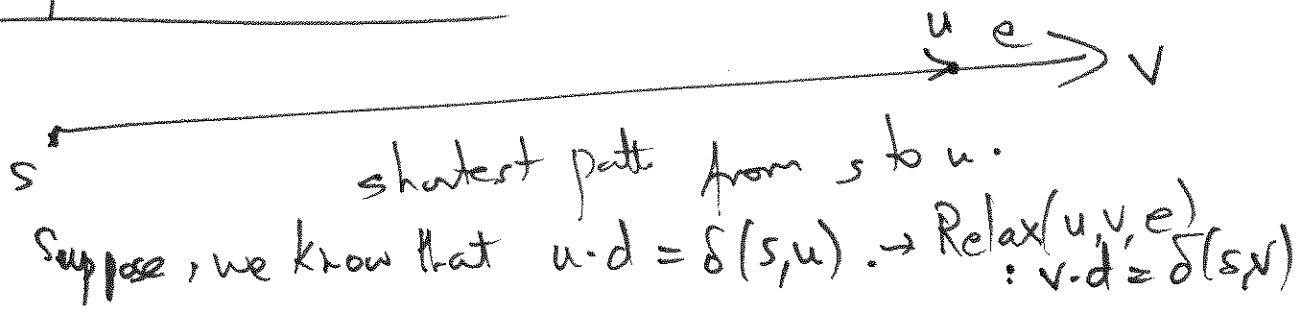 u e
v
s
shortest path from s to u.
Suppose, we know that u.d = δ(s,u). → Relax(u,v,e)
: v.d = δ(s,v)